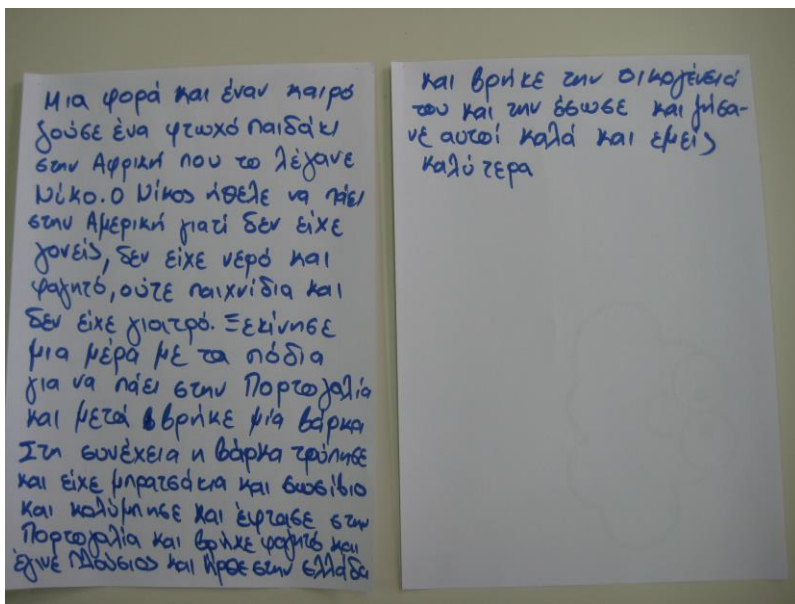 Μια φορά και έναν καιρό
ζούσε ένα φτωχό παιδάκι
στην Αφρική που το λέγανε
Νίκο. Ο Νίκος ήθελε να πάει
στην Αμερική γιατί δεν είχε
γονείς, δεν είχε νερό και
φαγητό, ούτε παιχνίδια και
δεν είχε γιατρό. Ξεκίνησε
μια μέρα με τα πόδια
για να πάει στην Πορτογαλία
και μετά βρήκε μία βάρκα
Στη συνέχεια η βάρκα τρύπησε
και είχε μπρατσάκια και σωσίβιο
και κολύμπησε και έφτασε στην
Πορτογαλία και βρήκε φαγητό και
έγινε πλούσιος και ήρθε στην ελλάδα
και βρήκε την οικογένειά
του και την έσωσε και ζήσα-
νε αυτοί καλά και εμείς
καλύτερα